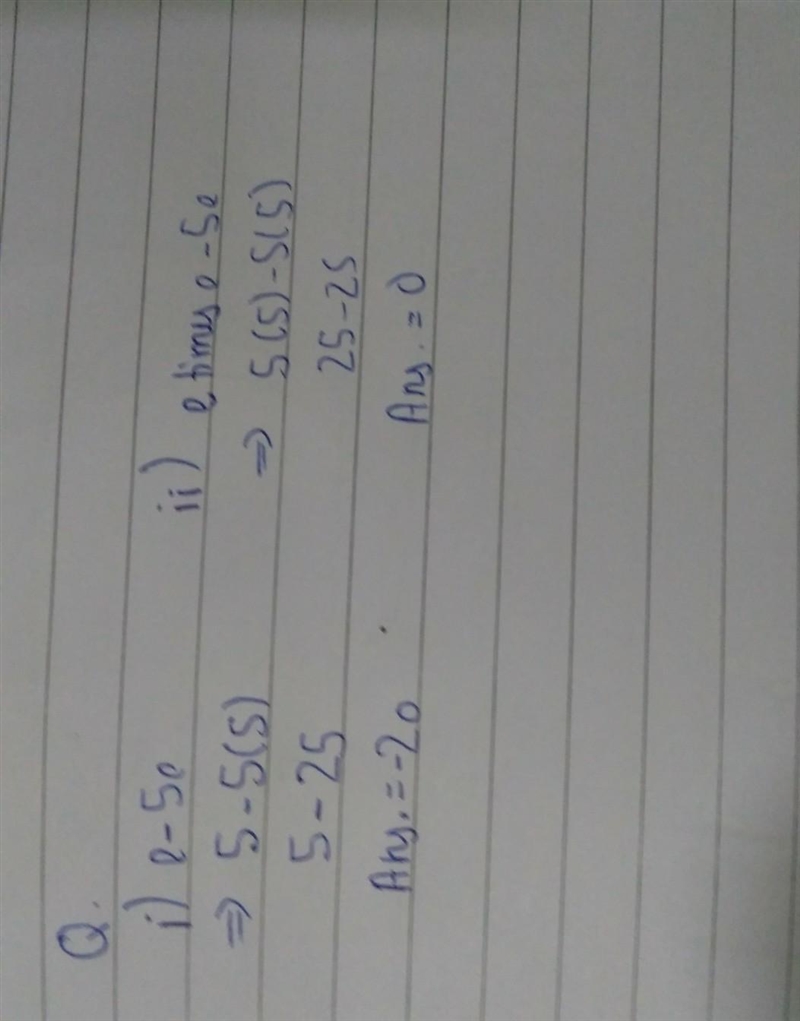 Q.
i) e - 5e
⇒ 5 - 5(5)
5 - 25
Ans. = -20
ii) e times e - 5e
⇒ 5(5) - 5(5)
25 - 25
Ans. = 0